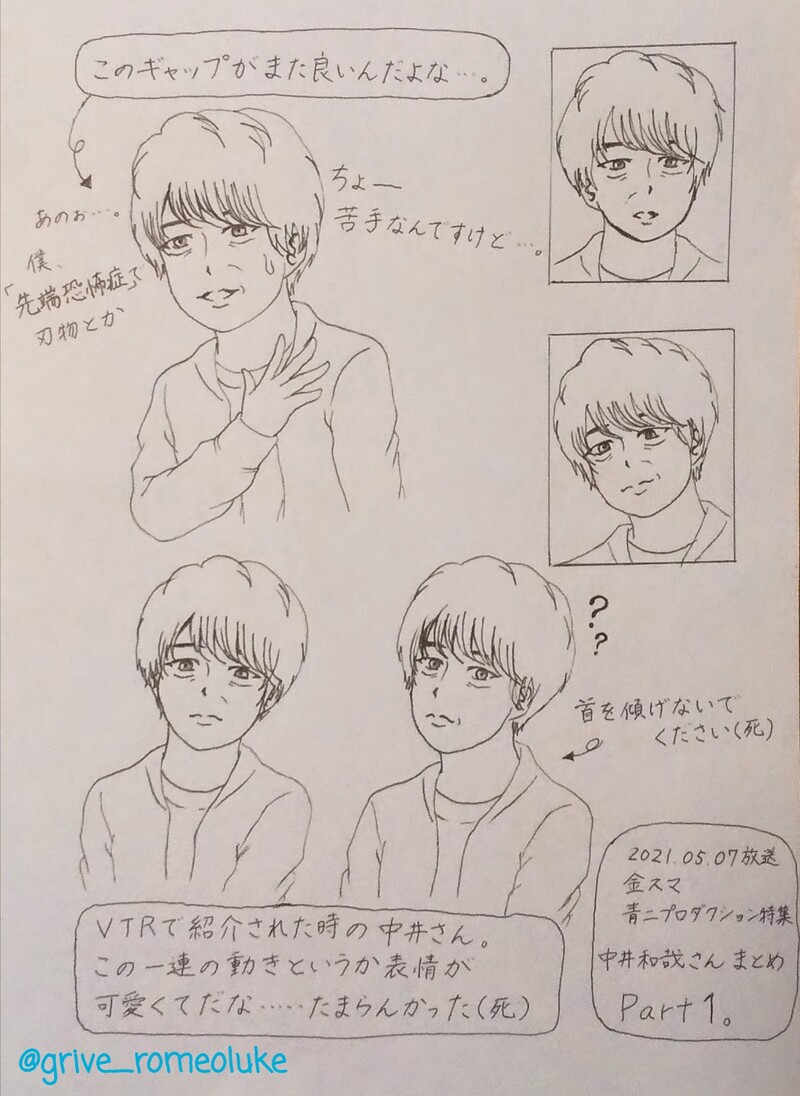 このギャップがまた良いんだよな…。
あのぉ…。
僕、
「先端恐怖症」で
刃物とか
ちょー
苦手なんですけど…。
??
首を傾げないで
ください(死)
VTRで紹介された時の中井さん。
この一連の動きというか表情が
可愛くてだな……たまらんかった(死)
2021.05.07放送
金スマ
青二プロダクション特集
中井和哉さん まとめ
Part1。
@grive_romeoluke